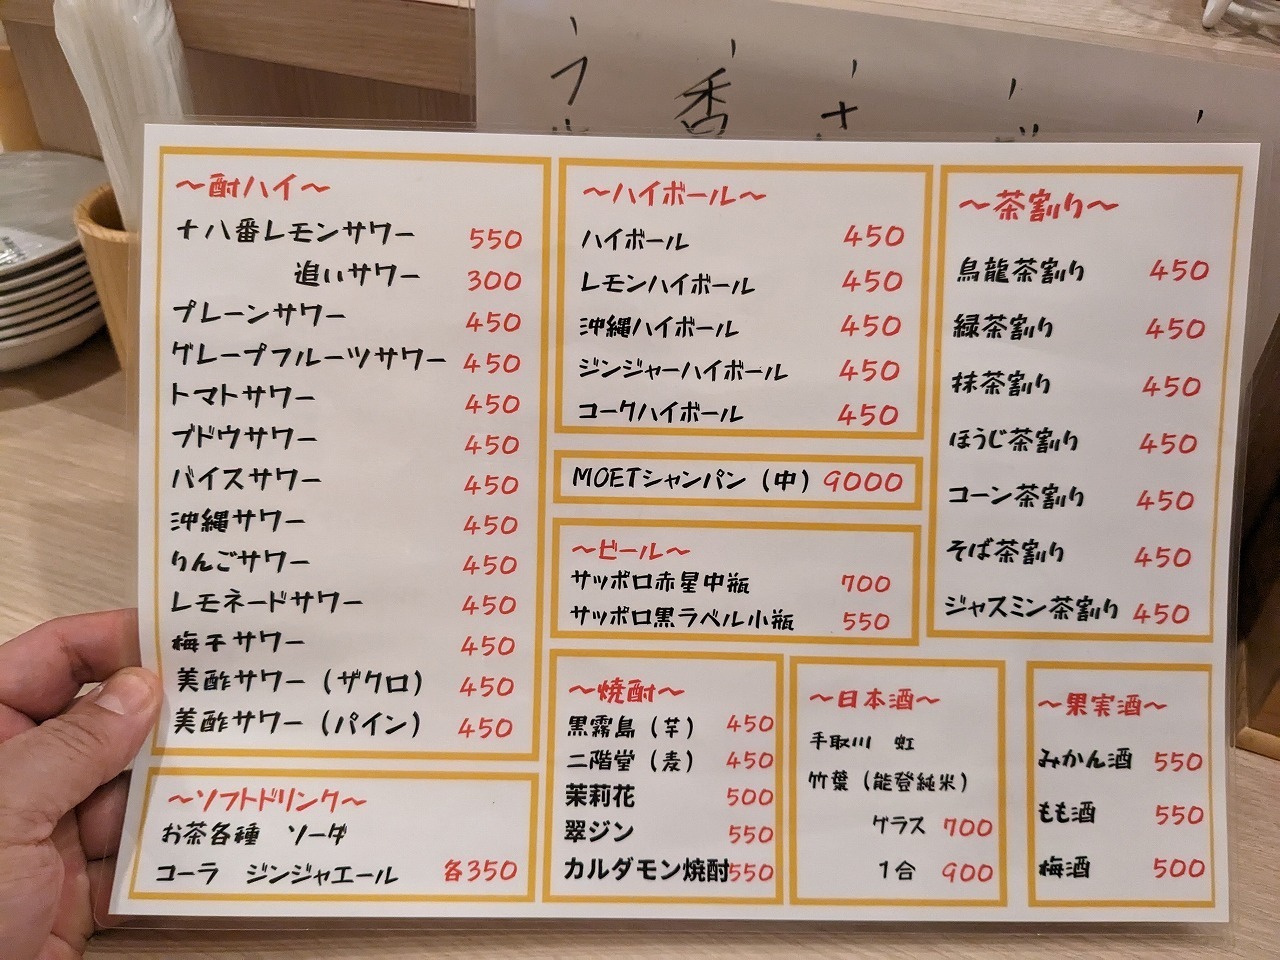 う
香
さ
～酎ハイ～
十八番レモンサワー 550
追いサワー 300
プレーンサワー 450
グレープフルーツサワー 450
トマトサワー 450
ブドウサワー 450
バイスサワー 450
沖縄サワー 450
りんごサワー 450
レモネードサワー 450
梅干サワー 450
美酢サワー（ザクロ） 450
美酢サワー（パイン） 450
～ソフトドリンク～
お茶各種 ソーダ
コーラ ジンジャエール 各350
～ハイボール～
ハイボール 450
レモンハイボール 450
沖縄ハイボール 450
ジンジャーハイボール 450
コークハイボール 450
MOETシャンパン（中）9000
～ビール～
サッポロ赤星中瓶 700
サッポロ黒ラベル小瓶 550
～焼酎～
黒霧島（芋） 450
二階堂（麦） 450
茉莉花 500
翠ジン 550
カルダモン焼酎550
～日本酒～
手取川 虹
竹葉（能登純米）
グラス 700
1合 900
～茶割り～
烏龍茶割り 450
緑茶割り 450
抹茶割り 450
ほうじ茶割り 450
コーン茶割り 450
そば茶割り 450
ジャスミン茶割り 450
～果実酒～
みかん酒 550
もも酒 550
梅酒 500